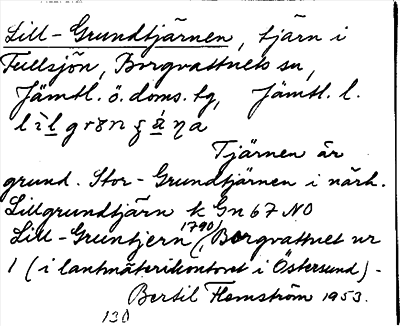 Lill-Grundtjärnen, tjärn i
Fullsjön, Borgvattnets sn,
Jämtl. ö. doms. tg, Jämtl. l.
Tjärnen är
grund. Stor-Grundtjärnen i närh.
Lillgrundtjärn k Gn 67 NO
Lill-Gruntjern (1790, Borgvattnet nr
1 (i lantmäterikontoret i Östersund) -
Bertil Flemström 1953.
130